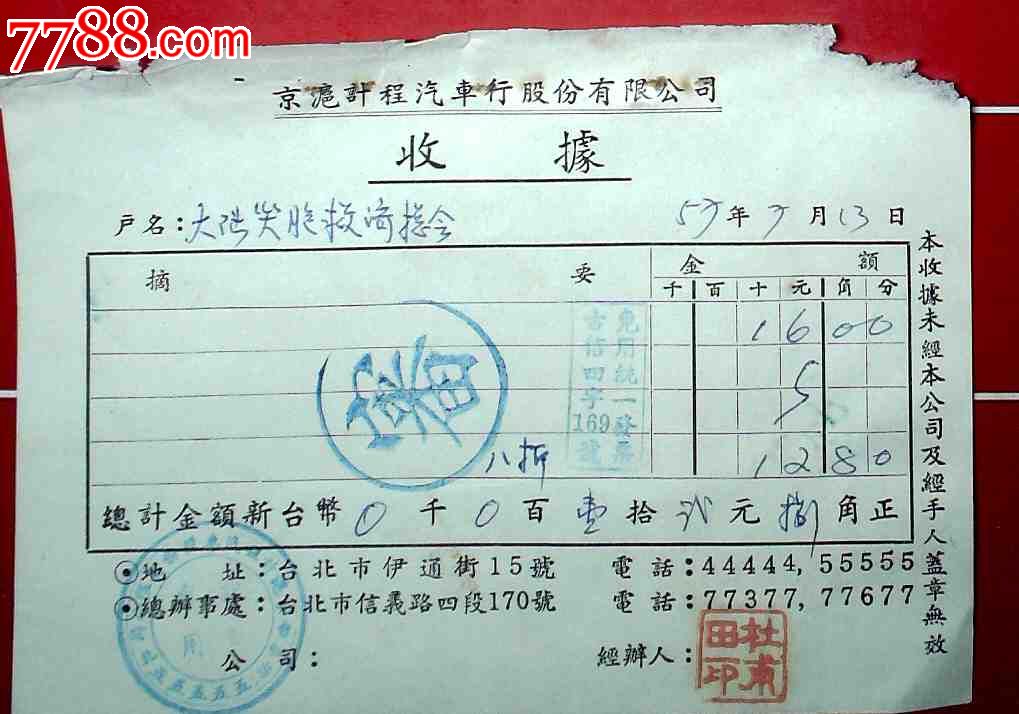 7788.com
京滬計程汽車行股份有限公司
收據
戶名：大陆灾胞救济总会
57年7月13日
摘要 金額
千百十元角分
1600
5
八折 1280
免用統一發票
古信四字169號
總計金額新台幣0千0百壹拾弍元捌角正
地址：台北市伊通街15號 電話：44444,55555
總辦事處：台北市信義路四段170號 電話：77377,77677
公司： 經辦人：
杜甫田印
本收據未經本公司及經手人蓋章無效